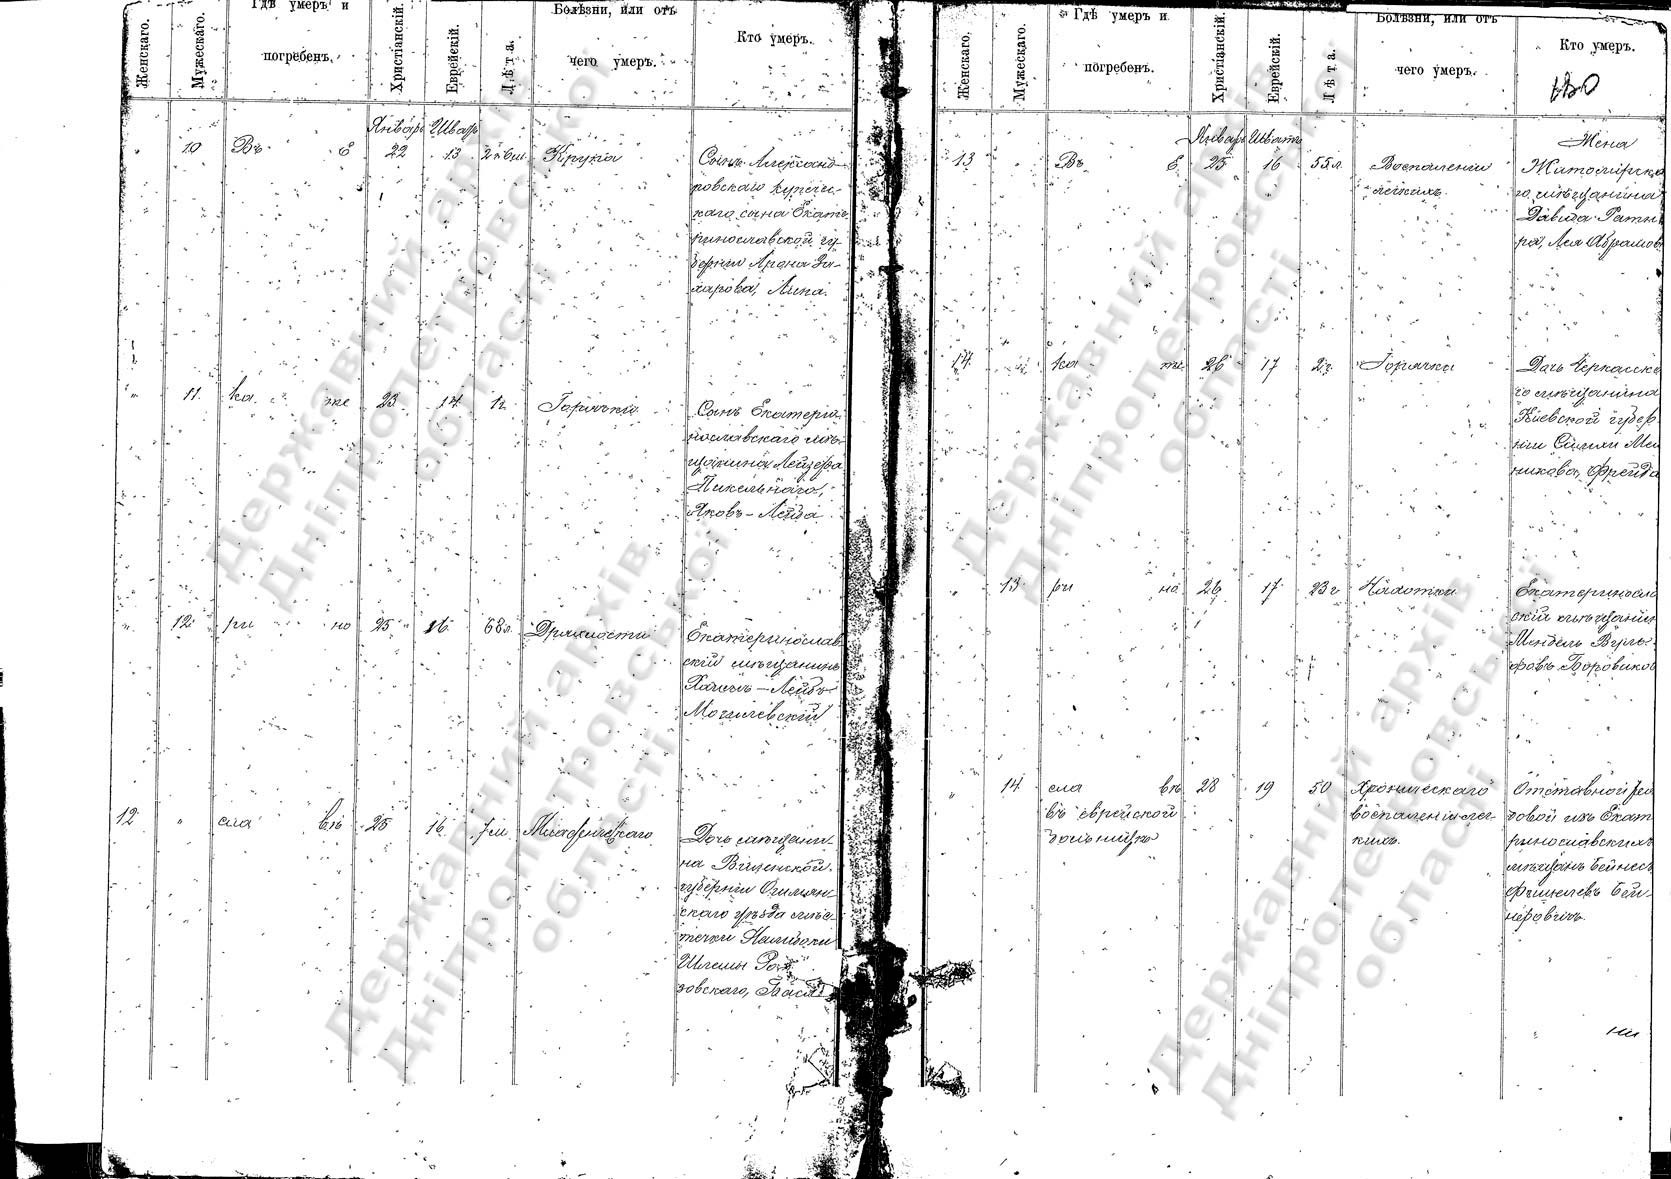 Женскаго.
Мужескаго.
Гдѣ умеръ и
погребенъ.
Христіанскій.
Еврейскій.
Лѣта.
Болѣзни, или отъ
чего умеръ.
Кто умеръ.
Январь Шватъ
" 10 Въ Е 22 13 Крупа
Сынъ Александ-
ровскаго купечес-
каго сына Екате-
ринославской гу-
берніи Арона За-
харова,
" 11 ка же 23 14 1г. Горячка
Сынъ Екатери-
нославскаго мѣ-
щанина Лейзера
Пикельнаго,
Яковъ-Лейба
" 12 ри но 25 16 68л. Дряхлости
Екатеринослав
скій мѣщанинъ
Хаимъ-Лейбъ
Могилевскій
12 " сла вѣ 25 16 7м Младенческаго
Дочь мѣщани-
на Виленской
губерніи Ошмян-
скаго уѣзда мѣс-
течки Налибоки
Шлемы
зовскаго, Бася
Женскаго.
Мужескаго.
Гдѣ умеръ и
погребенъ.
Христіанскій.
Еврейскій.
Лѣта.
Болѣзни, или отъ
чего умеръ.
Кто умеръ.
Январь Шватъ
13 " Въ Е 25 16 55л. Воспаленіи
легкихъ
Жена
Житомірска
го мѣщанина
Давида Ратне
ра, Лея Абрамов
14 " ка те 26 17 2г. Горячки
Дочь Черкасска
го мѣщанина
Кіевской губер
ніи
никова, Фрейда
" 13 ри но 26 17 23г Чахотки
Екатеринослав
скій мѣщанинъ
Мендель Вуль-
фовъ Боровиков
" 14 сла вѣ 28 19 50 Хроническаго
въ еврейской
больницѣ
воспаленія лег-
кихъ.
Отставной ря
довой изъ Екат
ринославскихъ
мѣщанъ Бейнесъ
Фишелевъ Бей-
неровичъ.